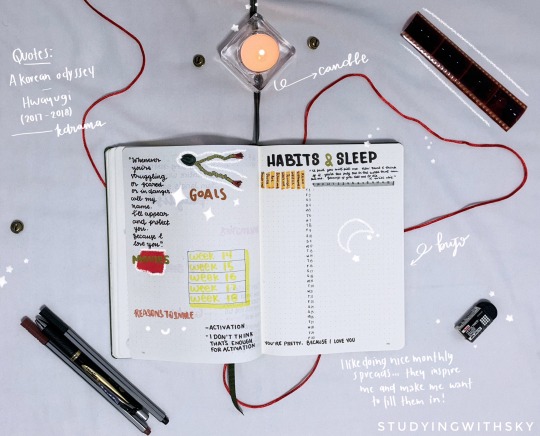 Quotes:
A korean odyssey
—
Hwayugi
(2017-2018)
kdrama
candle
"Whenever
you're
struggling,
or scared
or in danger
call my
name.
I'll appear
and protect
you.
Because I
love you."
GOALS
week 14
week 15
week 16
week 17
week 18
REASONS TO SMILE
-ACTIVATION
"I DON'T THINK
THATS ENOUGH
FOR ACTIVATION
HABITS & SLEEP
YOU'RE PRETTY. BECAUSE I LOVE YOU
bujo
I like doing nice monthly
spreads... they inspire
me and make me want
to fill them in!
STUDYINGWITHSKY